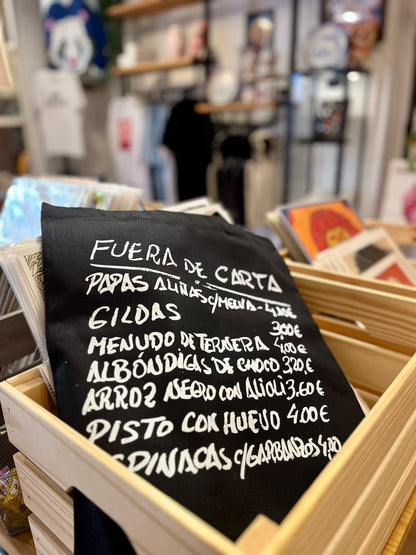 FUERA DE CARTA
PAPAS ALIÑAS C/MELVA - 4,20€
GILDAS 3,00€
MENUDO DE TERNERA 4,00€
ALBÓNDIGAS DE CHOCO 3,20€
ARROZ NEGRO CON ALIOLI 3,60€
PISTO CON HUEVO 4,00€
ESPINACAS C/GARBANZOS 4,00